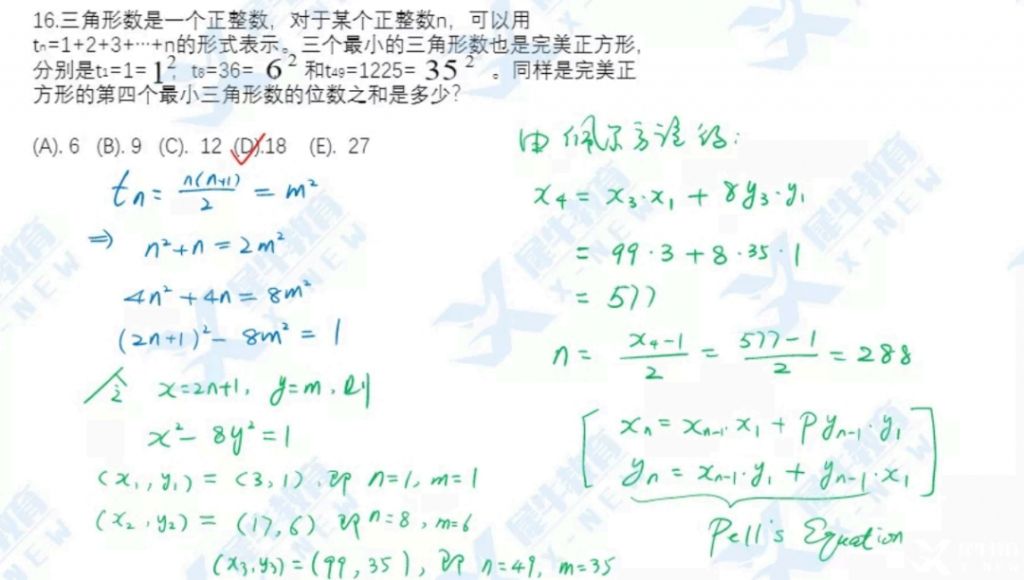 16.三角形数是一个正整数，对于某个正整数n，可以用
tn=1+2+3+···+n的形式表示。三个最小的三角形数也是完美正方形,
分别是t₁=1= 1²; t₈=36= 6² 和t₄₉=1225= 35² 。同样是完美正
方形的第四个最小三角形数的位数之和是多少?
(A). 6 (B). 9 (C). 12 (D).18 (E). 27
tn = n(n+1)/2 = m²
⇒ n²+n = 2m²
4n²+4n = 8m²
(2n+1)² - 8m² = 1
令 x=2n+1, y=m, 则
x² - 8y² = 1
(x₁, y₁) = (3, 1), 即 n=1, m=1
(x₂, y₂) = (17, 6) 即 n=8, m=6
(x₃, y₃) = (99, 35), 即 n=49, m=35
由佩尔方程:
x₄ = x₃·x₁ + 8y₃·y₁
= 99·3 + 8·35·1
= 577
n = (x₄-1)/2 = (577-1)/2 = 288
xn = xn-1·x₁ + Pyn-1·y₁
yn = xn-1·y₁ + yn-1·x₁
Pell's Equation
犀牛教育
X-NEW